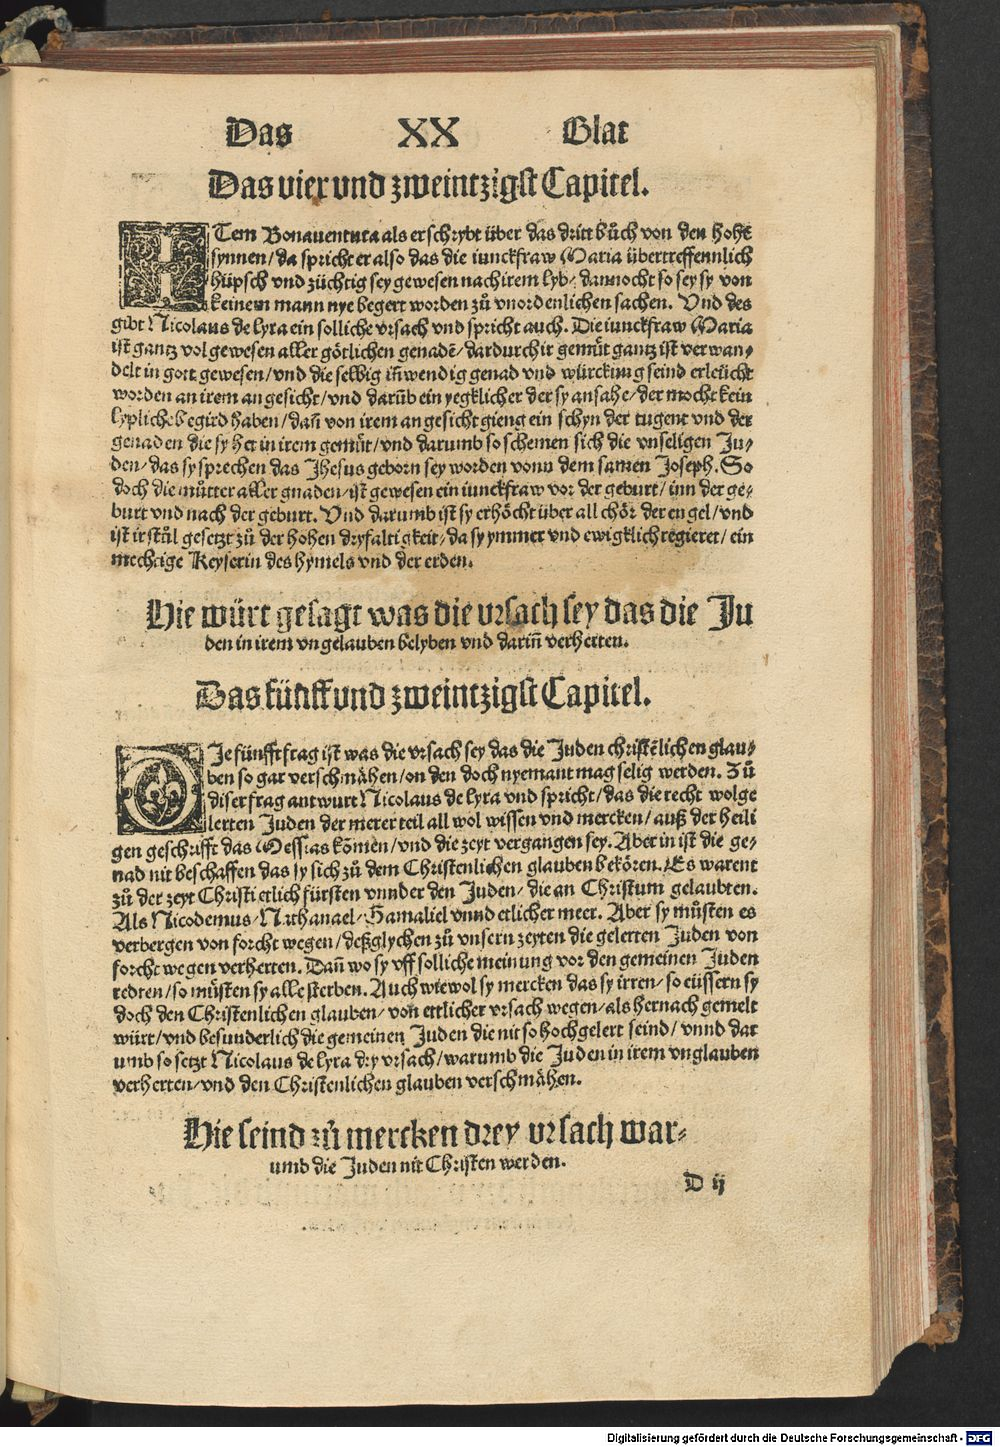 Das XX Blat
Das vier vnd zweintzigst Capitel.
ITem Bonauentura als er schrybt über das dritt bůch von den hohē
synnen / da spricht er also das die iunckfraw Maria übertreffennlich
hüpsch vnd züchtig sey gewesen nach irem lyb / dannocht so sey sy von
keinem mann nye begert worden zů vnordenlichen sachen. Vnd des
gibt Nicolaus de lyra ein solliche vrsach vnd spricht auch. Die iunckfraw Maria
ist gantz vol gewesen aller götlichen genadē / dardurch ir gemüt gantz ist verwan-
delt in gott gewesen / vnd die selbig iñwendig genad vnd würckung seind erleücht
worden an irem angesicht / vnd darūb ein yegklicher der sy ansahe / der mocht kein
lypliche begird haben / dañ von irem angesicht gieng ein schyn der tugent vnd der
genaden die sy het in irem gemüt / vnd darumb so schemen sich die vnseligen Ju-
den / das sy sprechen das Jhesus geborn sey worden vonn dem samen Joseph. So
doch die můtter aller gnaden / ist gewesen ein iunckfraw vor der geburt / inn der ge-
burt vnd nach der geburt. Vnd darumb ist sy erhöcht über all chör der engel / vnd
ist ir stůl gesetzt zů der hohen dryfaltigkeit / da sy ymmer vnd ewigklich regieret / ein
mechtige Keyserin des hymels vnd der erden.
Hie würt gesagt was die vrsach sey das die Ju
den in irem vngelauben belyben vnd dariñ verherten.
Das fünff vnd zweintzigst Capitel.
DIe fünfft frag ist was die vrsach sey das die Juden christēlichen glau-
ben so gar verschmähen / on den doch nyemant mag selig werden. Zů
diser frag antwurt Nicolaus de lyra vnd spricht / das die recht wolge
lerten Juden der merer teil all wol wissen vnd mercken / auß der heili
gen geschrifft das Messias kōmen / vnd die zeyt vergangen sey. Aber in ist die ge-
nad nit beschaffen das sy sich zů dem Christenlichen glauben bekören. Es warent
zů der zeyt Christi etlich fürsten vnnder den Juden / die an Christum gelaubten.
Als Nicodemus / Nathanael / Gamaliel vnnd etlicher meer. Aber sy můsten es
verbergen von forcht wegen / deßglychen zů vnsern zeyten die gelerten Juden von
forcht wegen verherten. Dañ wo sy vff solliche meinung vor den gemeinen Juden
redten / so müsten sy alle sterben. Auch wiewol sy mercken das sy irren / so eüssern sy
doch den Christenlichen glauben / von ettlicher vrsach wegen / als hernach gemelt
würt / vnd besunderlich die gemeinen Juden die nit so hochgelert seind / vnnd dar
umb so setzt Nicolaus de lyra dry vrsach / warumb die Juden in irem vnglauben
verherten / vnd den Christenlichen glauben verschmähen.
Hie seind zů mercken drey vrsach war-
umb die Juden nit Christen werden.
D ij
Digitalisierung gefördert durch die Deutsche Forschungsgemeinschaft - DFG